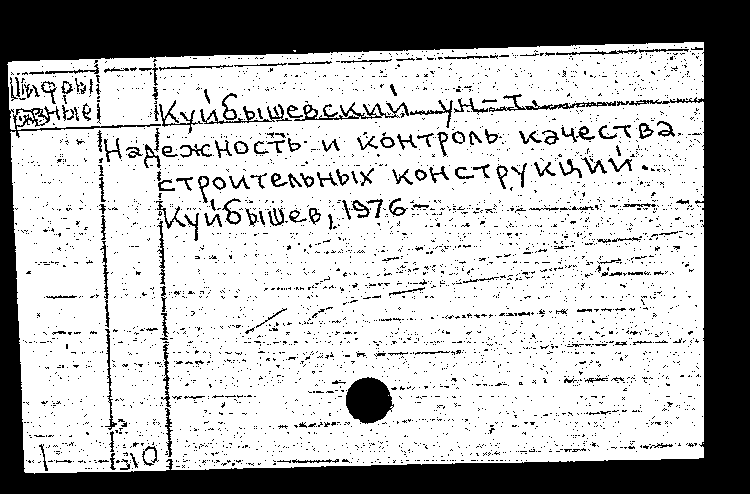 Шифры
разные
Куйбышевский ун-т.
Надежность и контроль качества
строительных конструкций.
Куйбышев, 1976-